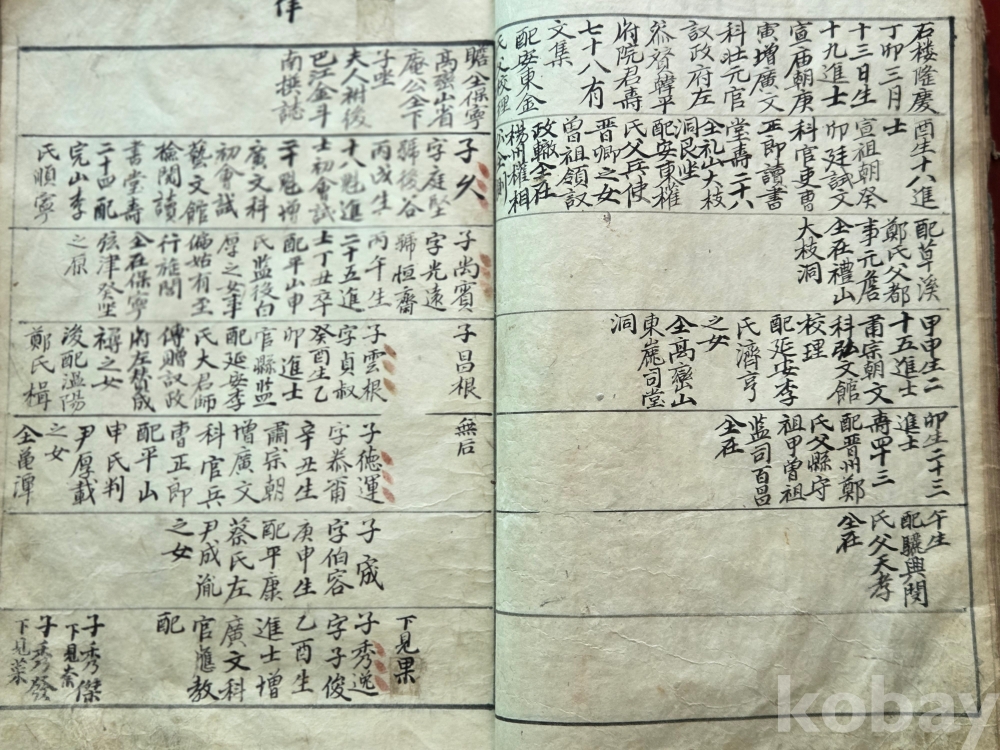 石楼隆慶
丁卯三月
十三日生
十九進士
宣庙朝庚
寅增廣文
科壮元官
議政府左
叅賛韓平
府院君壽
七十八有
文集
配安東金
氏父校理
酉生十八進
士
宣祖朝癸
卯廷試文
科官吏曹
正郎讀書
堂壽二十六
仝礼山大枝
洞艮坐
配安東權
氏父兵使
晋卿之女
曽祖領議
政轍仝在
楊州權相
配草溪
鄭氏父都
事元詹
仝在禮山
大枝洞
甲申生二
十五進士
肅宗朝文
科弘文館
校理
配延安李
氏濟亨
之女
仝高巒山
東嵬司堂
洞
卯生二十三
進士
壽四十三
配晋州鄭
氏父縣守
祖甲曽祖
监司百昌
仝在
午生
配驪興閔
氏父天孝
仝在
贍仝保寧
高巒山省
庵公仝下
子坐
夫人柎後
巴江金斗
南撰誌
子久
字庭堅
號後谷
丙戌生
十八魁進
士初會試
二十魁增
廣文科
初會試
藝文館
檢閱讀
書堂壽
二十四配
完山李
氏順寧
子尚賓
字光遠
號恒齋
丙午生
二十五進
士丁丑卒
配平山申
氏监役曰
厚之女事
偏姑有至
行旌閭
仝在保寧
弦津癸坐
之原
子昌根
子雲根
字貞叔
癸酉生乙
卯進士
官縣监
配延安李
氏大君師
傅贈議政
府左賛成
䙗之女
後配溫陽
鄭氏楫
無后
子德運
字泰甫
辛丑生
肅宗朝
增廣文
科官兵
曹正郎
配平山
申氏判
尹厚載
之女
仝亀潭
子宬
字伯容
庚申生
配平康
蔡氏左
尹成胤
之女
下見果
子秀逸
字子俊
乙酉生
進士增
廣文科
官應教
配
子秀傑
下見柰
子秀發
下見菜
kobay